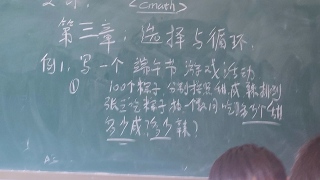 <cmath>
第三章,选择与循环.
例1,写一个 端午节 游戏活动
① 100个粽子,分别按照 甜 咸 辣 排列
张三吃粽子 拍一个数问 吃了多少个甜
多少咸?多少辣?